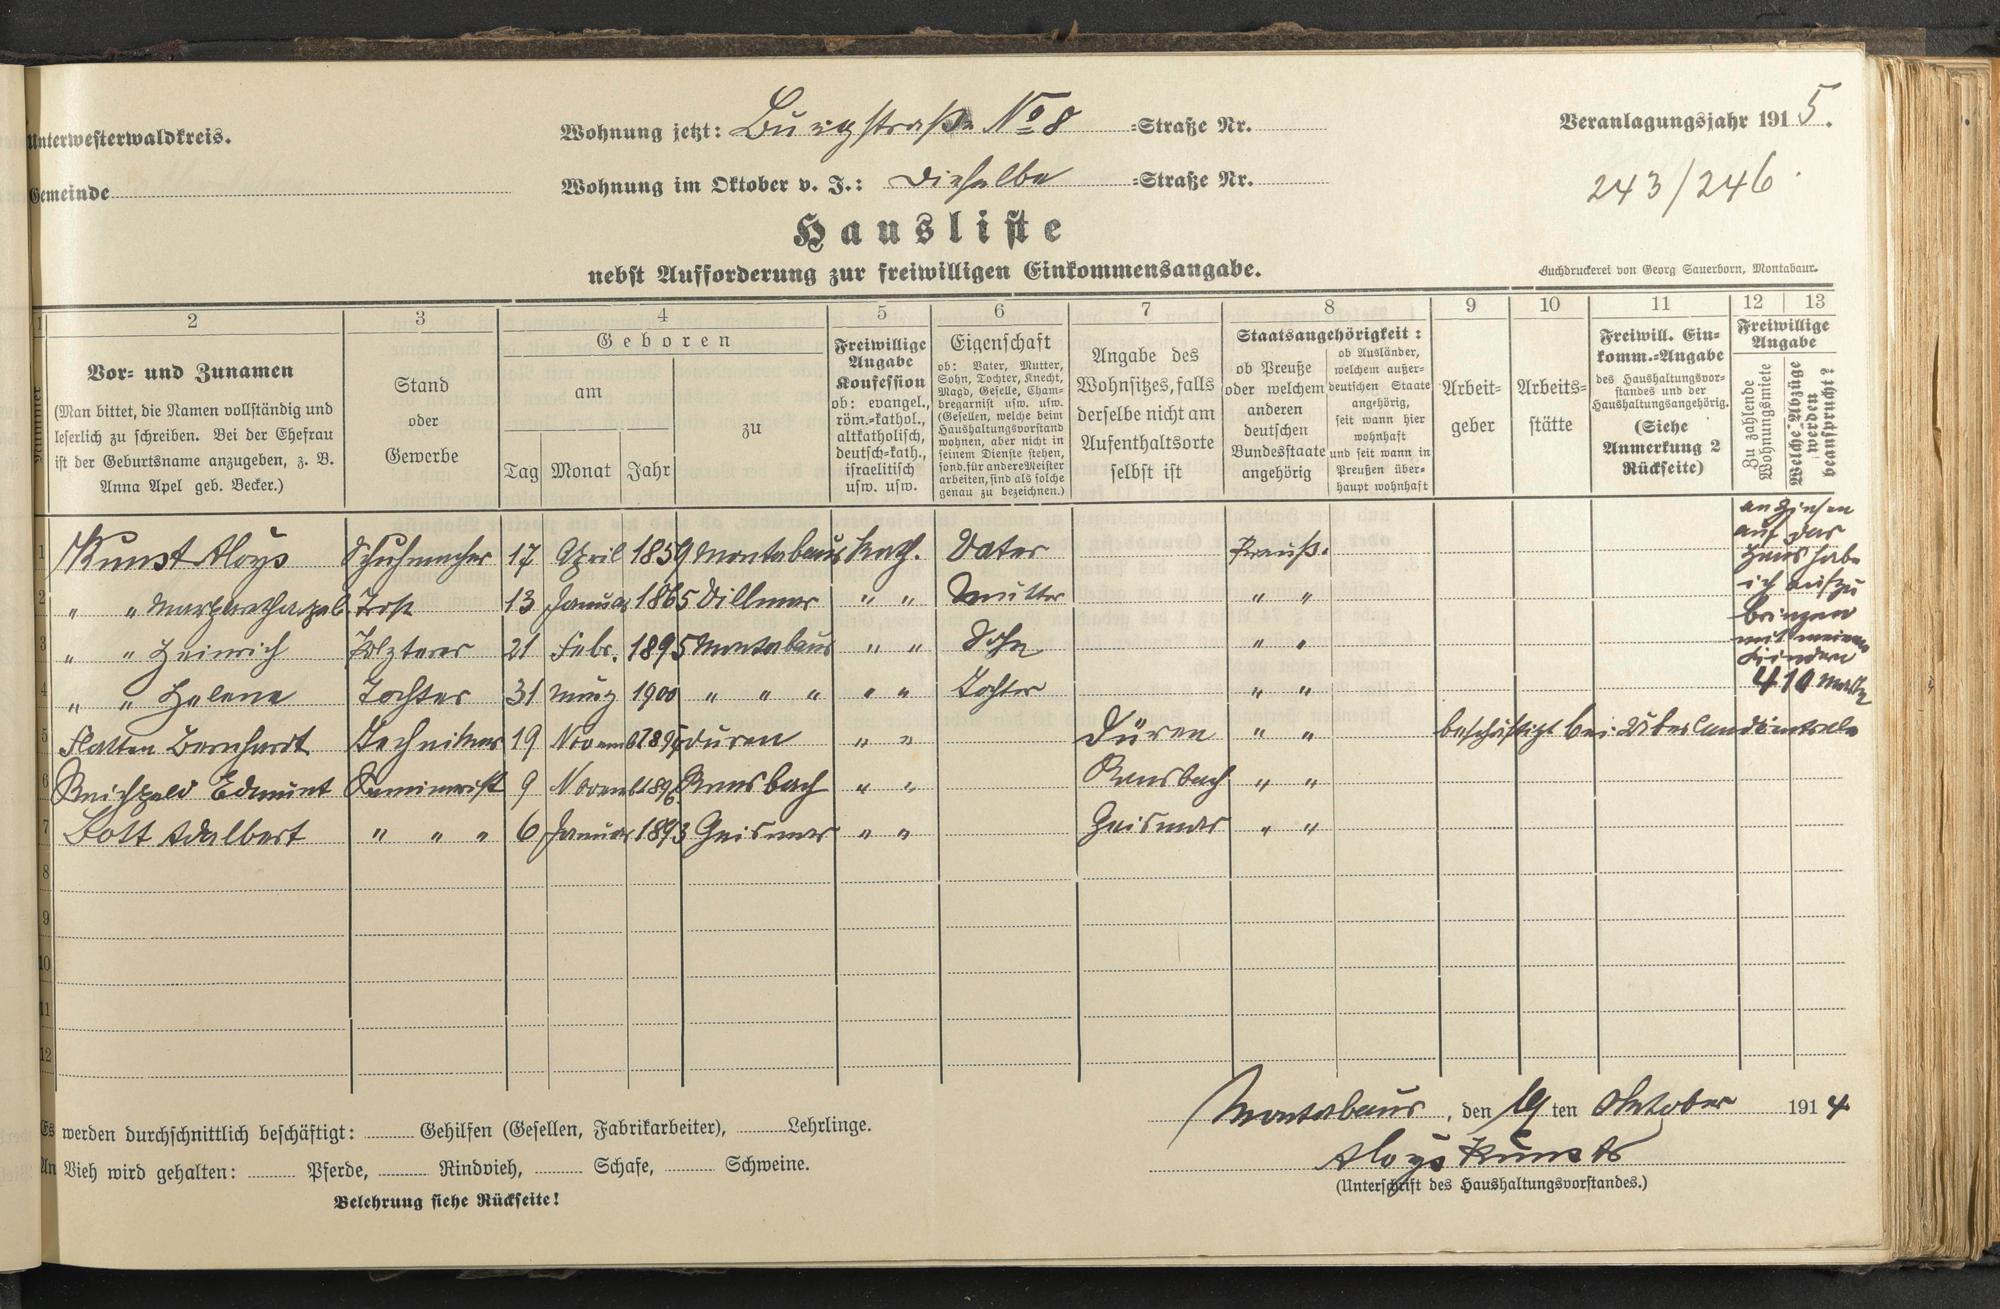 Unterwesterwaldkreis.
Wohnung jetzt: Burgstraße No 8 =Straße Nr.
Veranlagungsjahr 1915.
Gemeinde
Wohnung im Oktober v. J.: Dieselbe =Straße Nr.
243/246.
Hausliste
nebst Aufforderung zur freiwilligen Einkommensangabe.
Buchdruckerei von Georg Sauerborn, Montabaur.
1 2 3 4 5 6 7 8 9 10 11 12 13
Nummer
Vor- und Zunamen
(Man bittet, die Namen vollständig und
leserlich zu schreiben. Bei der Ehefrau
ist der Geburtsname anzugeben, z. B.
Anna Apel geb. Becker.)
Stand
oder
Gewerbe
Geboren
am
Tag Monat Jahr
zu
Freiwillige
Angabe
Konfession
ob: evangel.,
röm.-kathol.,
altkatholisch,
deutsch-kath.,
israelitisch
usw. usw.
Eigenschaft
ob: Vater, Mutter,
Sohn, Tochter, Knecht,
Magd, Geselle, Cham-
bregarnist usw. usw.
(Gesellen, welche beim
Haushaltungsvorstand
wohnen, aber nicht in
seinem Dienste stehen,
sond. für andere Meister
arbeiten, sind als solche
genau zu bezeichnen.)
Angabe des
Wohnsitzes, falls
derselbe nicht am
Aufenthaltsorte
selbst ist
Staatsangehörigkeit:
ob Preuße
oder welchem
anderen
deutschen
Bundesstaate
angehörig
ob Ausländer,
welchem außer-
deutschen Staate
angehörig,
seit wann hier
wohnhaft
und seit wann in
Preußen über-
haupt wohnhaft
Arbeit-
geber
Arbeits-
stätte
Freiwill. Ein-
komm.-Angabe
des Haushaltungsvor-
standes und der
Haushaltungsangehörig.
(Siehe
Anmerkung 2
Rückseite)
Freiwillige
Angabe
Zu zahlende
Wohnungsmiete
Welche Abzüge
werden
beansprucht?
1 Kunst Aloys Schuhmacher 17 April 1859 Montabaur Kath. Vater Preuß.
2 " " Margaretha geb. Jost 13 Januar 1865 Dillmar " " Mutter " "
3 " " Heinrich 21 Febr. 1895 Montabaur " " Sohn " "
4 " " Helene Tochter 31 März 1900 " " " " " Tochter " "
5 Platten Bernhardt Techniker 19 Düren " " Düren " " beschäftigt bei Überlandzentrale
6 Edmunt Seminarist 9 Ransbach " " Ransbach " "
7 Bott Adalbert " " " 6 Januar 1893 Geismar " " Geismar " "
an Zinsen
auf das
Haus habe
ich aufzu
bringen
mit meinen
Kindern
410 Mark
8
9
10
11
12
Montabaur, den 19ten Oktober 1914
Aloys Kunst
(Unterschrift des Haushaltungsvorstandes.)
Es werden durchschnittlich beschäftigt: Gehilfen (Gesellen, Fabrikarbeiter), Lehrlinge.
An Vieh wird gehalten: Pferde, Rindvieh, Schafe, Schweine.
Belehrung siehe Rückseite!